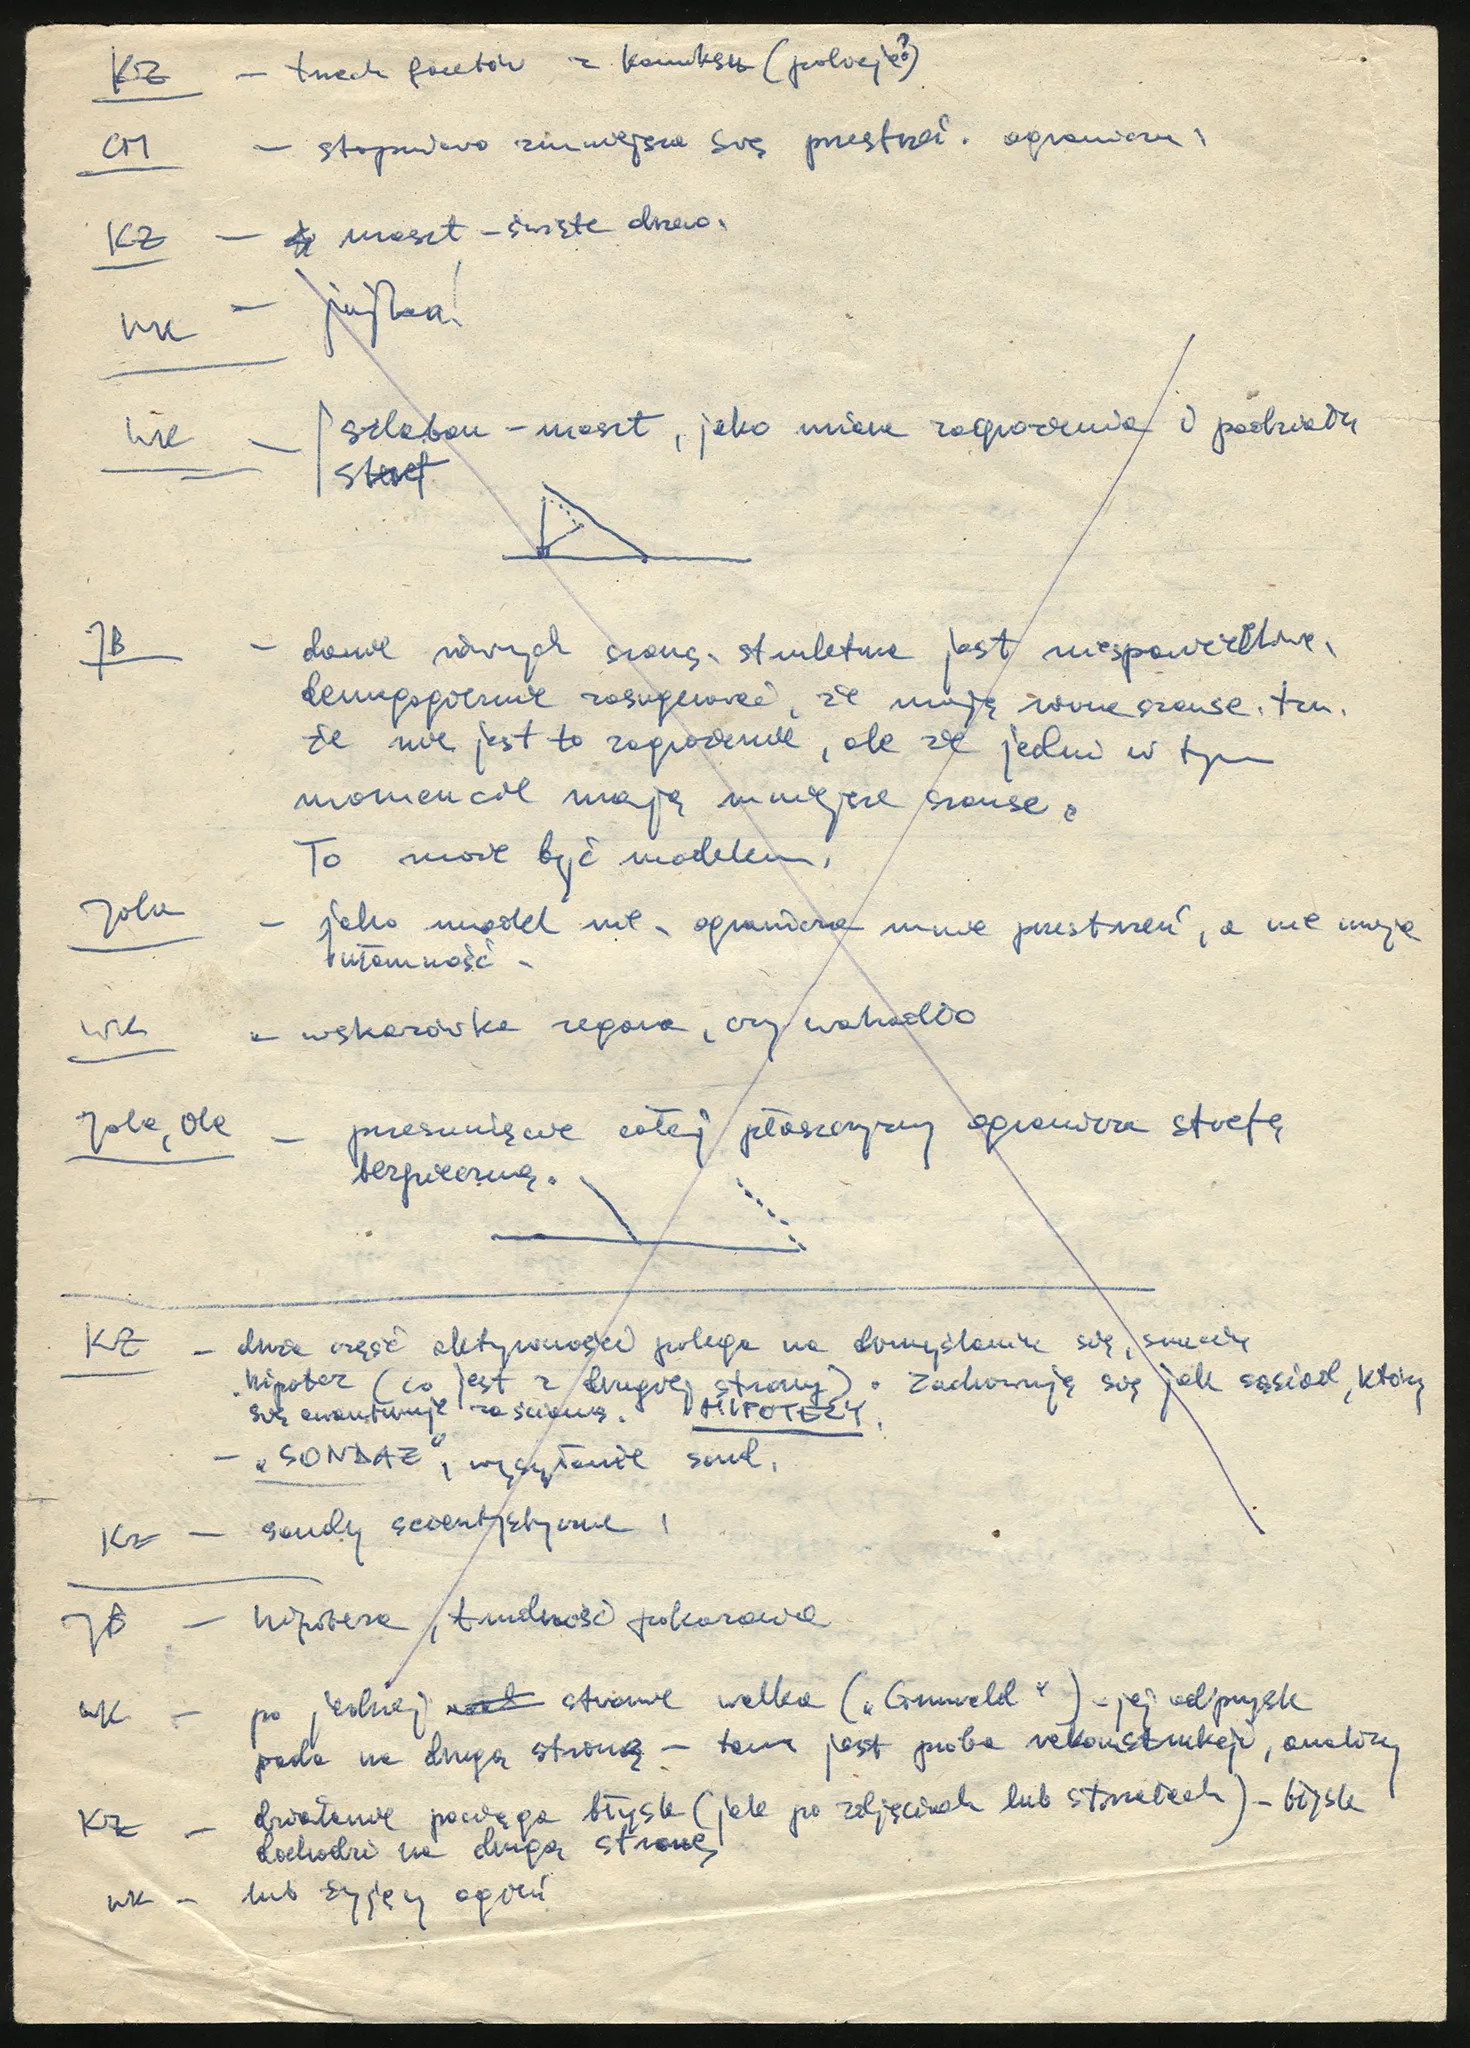 KZ – trzech facetów z komiksu (policję?)
CM – stopniowo zmniejsza się przestrzeń. ogranicza.
KZ – maszt – święte drzewo.
WK –
WK – szlaban – maszt, jako miara zagrożenia i podziału
JB – danie równych szans. struktura jest niesprawiedliwa.
demagogicznie zasugerować, że mają równe szanse. tzn.
że nie jest to zagrożenie, ale że jedni w tym
momencie mają mniejsze szanse.
To może być modelem.
Jola – jako model nie. ogranicza mnie przestrzeń, a nie moja
ułomność.
WK – wskazówka zegara, czy wahadło
Jola, Ola – przesunięcie całej płaszczyzny ogranicza strefę
bezpieczną.
KZ – duża część aktywności polega na domyślaniu się, snuciu
hipotez (co jest z drugiej strony). Zachowują się jak sąsiad, który
się awanturuje za ścianą. HIPOTEZY.
– „SONDAŻ”, wysyłanie sond.
KZ – sondy scientystyczne.
JB – hipoteza, trudność pokazania
WK – po jednej stronie walka („Grunwald”) – jej odprysk
pada na drugą stronę – tam jest próba rekonstrukcji, analizy
KZ – działanie powiela błysk (jak po zdjęciach lub strzałach) – błysk
dochodzi na drugą stronę
WK – lub żyjący ogień